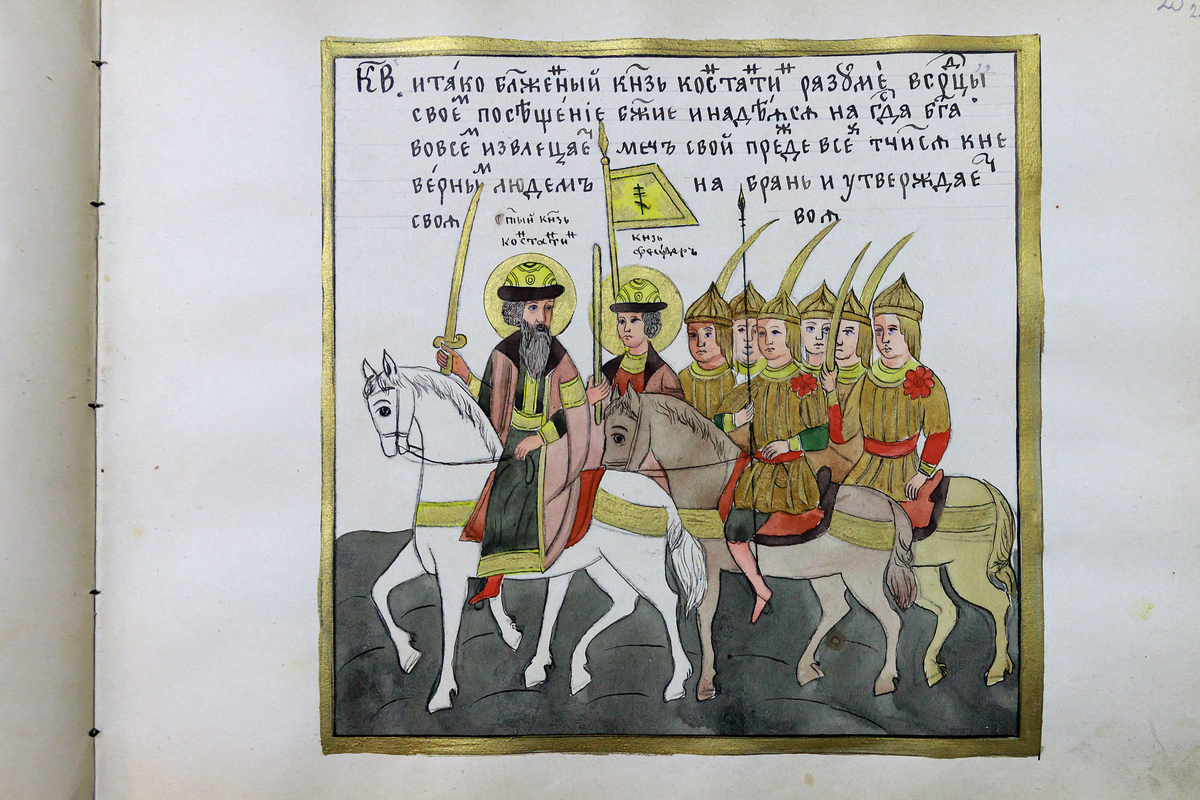 К҃В. и та́ко бл҃же́нⷩ҇ый кн҃зь костⷩ҇атиⷩ҇ⷩ҇ разꙋмѣ̀ в срⷣцы
своеⷨ посѣще́нїе бж҃ие и надѣ́ѧсѧ на гⷭ҇да бг҃а
во всеⷨ извлецаеⷮ мечъ свой преⷤде всеⷯ тчи́сѧ к не
ве́рныⷨ людемъ на брань и утверждаеⷮ
своѧ воѧ
ст҃ый кн҃зь
костⷩ҇атиⷩ҇ⷩ҇
кнзь
феѡдаръ